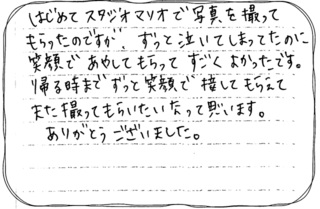 はじめて スタジオマリオで 写真を 撮って
もらったのですが、ずっと泣いてしまってたのに
笑顔で あやしてもらって すごく よかったです。
帰る時まで ずっと 笑顔で 接してもらえて
また 撮ってもらいたいなって思います。
ありがとう ございました。